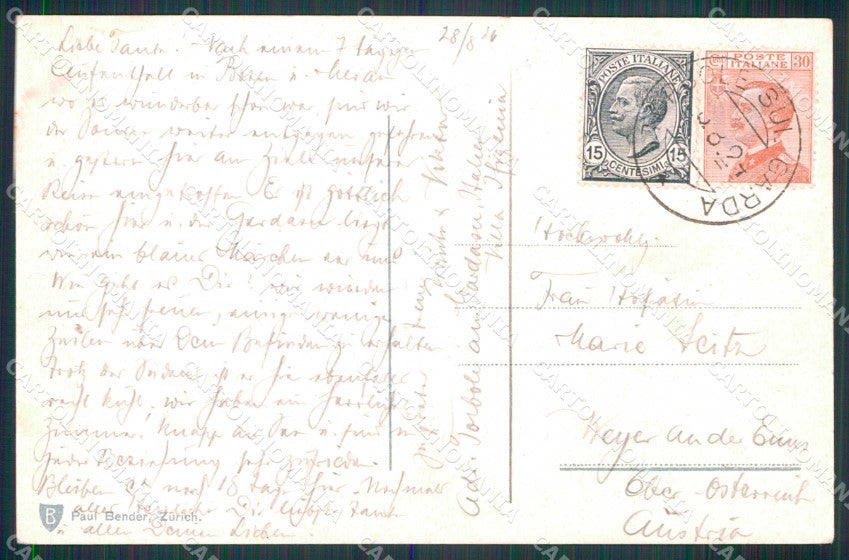 28/8 26
Liebe Tante! Nach einem 7 tägigen
Aufenthalt in Bozen u. Meran
wo es wunderbar schön war, sind wir
der Sonne weiter entgegen gefahren
u. gestern hier am Ziele unserer
Reise eingetroffen. Es ist göttlich
schön hier u. der Gardasee liegt
wie ein blaues Märchen vor uns
Wie geht es Dir? wir würden
uns sehr freuen, einige wenige
Zeilen von Dein Befinden zu erhalten
Trotz der Süden ist es hier ebenfalls
recht kühl, wir haben ein herrliches
Zimmer! knapp am See u. sind in
jeder Beziehung sehr zufrieden.
Bleiben noch 18 Tage hier. Nochmals
alles Dir liebste Tante
u allen Deinen Lieben
Adr. Torbole am Gardasee, Italien
Villa Ifigenia
POSTE ITALIANE
15 CENTESIMI 15
POSTE ITALIANE 30
SUL GARDA
Hochwohlg.
Frau Hofrätin
Marie Seitz
Steyer an der Enns
Ober-Österreich
Austria
B
Paul Bender, Zürich.
CARTOLINOMANIA